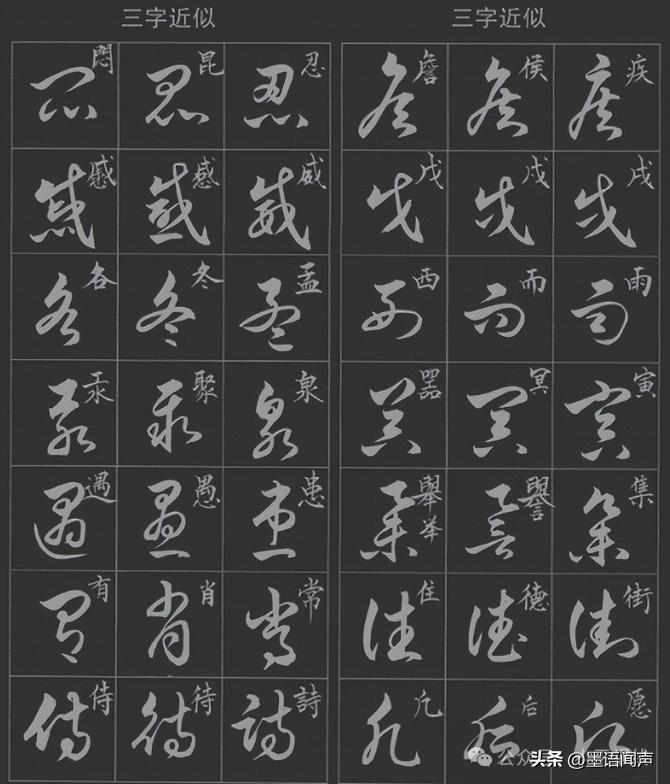 三字近似 三字近似
悶 昆 忍 詹 侯 疾
感 威 戌
各 冬 孟 西 而 雨
汞 聚 泉 器 冥 寅
遇 愚 患 舉 举 譽 集
有 肖 常 住 德 街
侍 待 詩 后 愿
头条 @墨语闻声